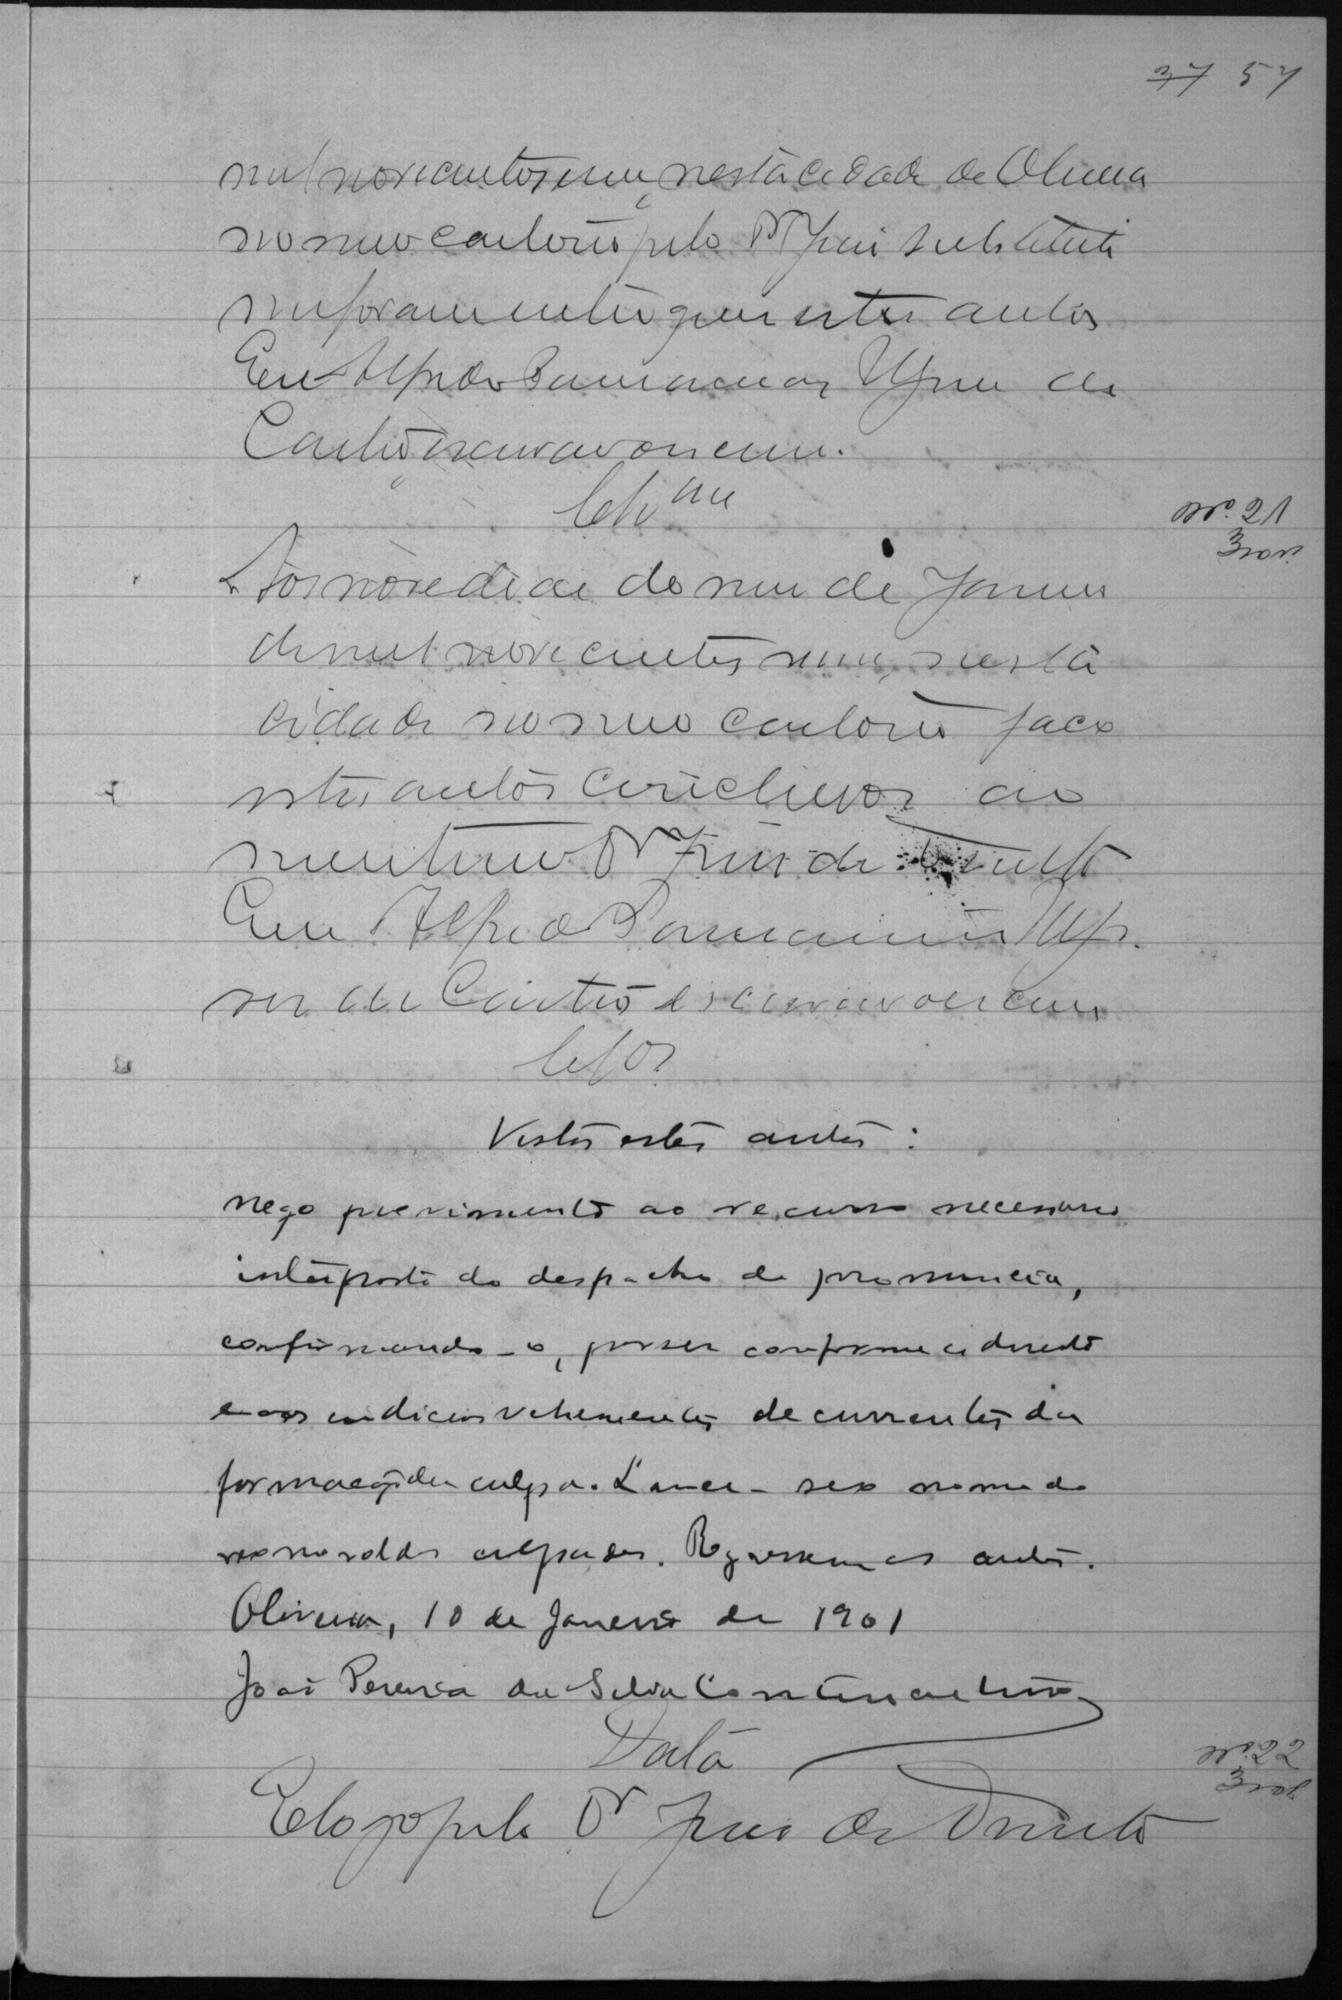 37 57
mil novecentos e um, nesta cidade de Oliveira
no meu cartorio pelo Dr Juiz substituto
me foram entregues estes autos
Eu Alfredo
Castro escrivão o escrevi.
Clsm
Nº 21
Aos nove dias do mez de Janeiro
de mil novecentos e um, nesta
cidade no meu cartorio faço
estes autos conclusos ao
meretissimo Dr Juiz de Direito
Eu Alfredo
de Castro escrivão o escrevi
Clsos
Vistos estes autos:
nego provimento ao recurso necessario
interposto do despacho de pronuncia,
confirmando-o, por ser conforme a direito
e aos indicios vehementes decurrentes da
formação da culpa. Lance-se o nome do
reo no rol dos culpados. Regressem os autos.
Oliveira, 10 de Janeiro de 1901
João Pereira da Silva Continentino
Data
Nº 22
E logo pelo Dr Juiz de Direito